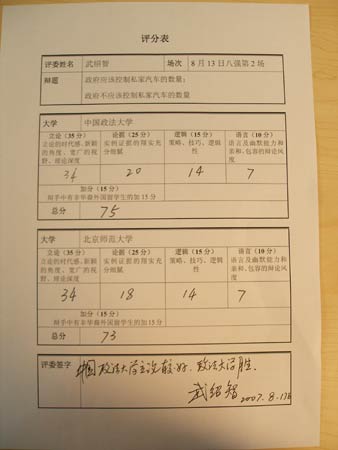 评分表
评委姓名 武绍智 场次 8 月 13 日八强第 2 场
辩题 政府应该控制私家汽车的数量;
政府不应该控制私家汽车的数量
大学 中国政法大学
立论(35 分) 论据(25 分) 逻辑(15 分) 语言(10 分)
立论的时代感、新颖 实例证据的翔实充 策略、技巧、逻辑 语言及幽默能力和
的角度、宽广的视 分细腻 性 亲和、包容的辩论风
野、辩论深度 度
34 20 14 7
加分(15 分)
辩手中有非华裔外国留学生的加 15 分
总分 75
大学 北京师范大学
立论(35 分) 论据(25 分) 逻辑(15 分) 语言(10 分)
立论的时代感、新颖 实例证据的翔实充 策略、技巧、逻辑 语言及幽默能力和
的角度、宽广的视 分细腻 性 亲和、包容的辩论风
野、辩论深度 度
34 18 14 7
加分(15 分)
辩手中有非华裔外国留学生的加 15 分
总分 73
评委签字 中国政法大学主说较好, 政法大学胜.
武绍智 2007.8.13